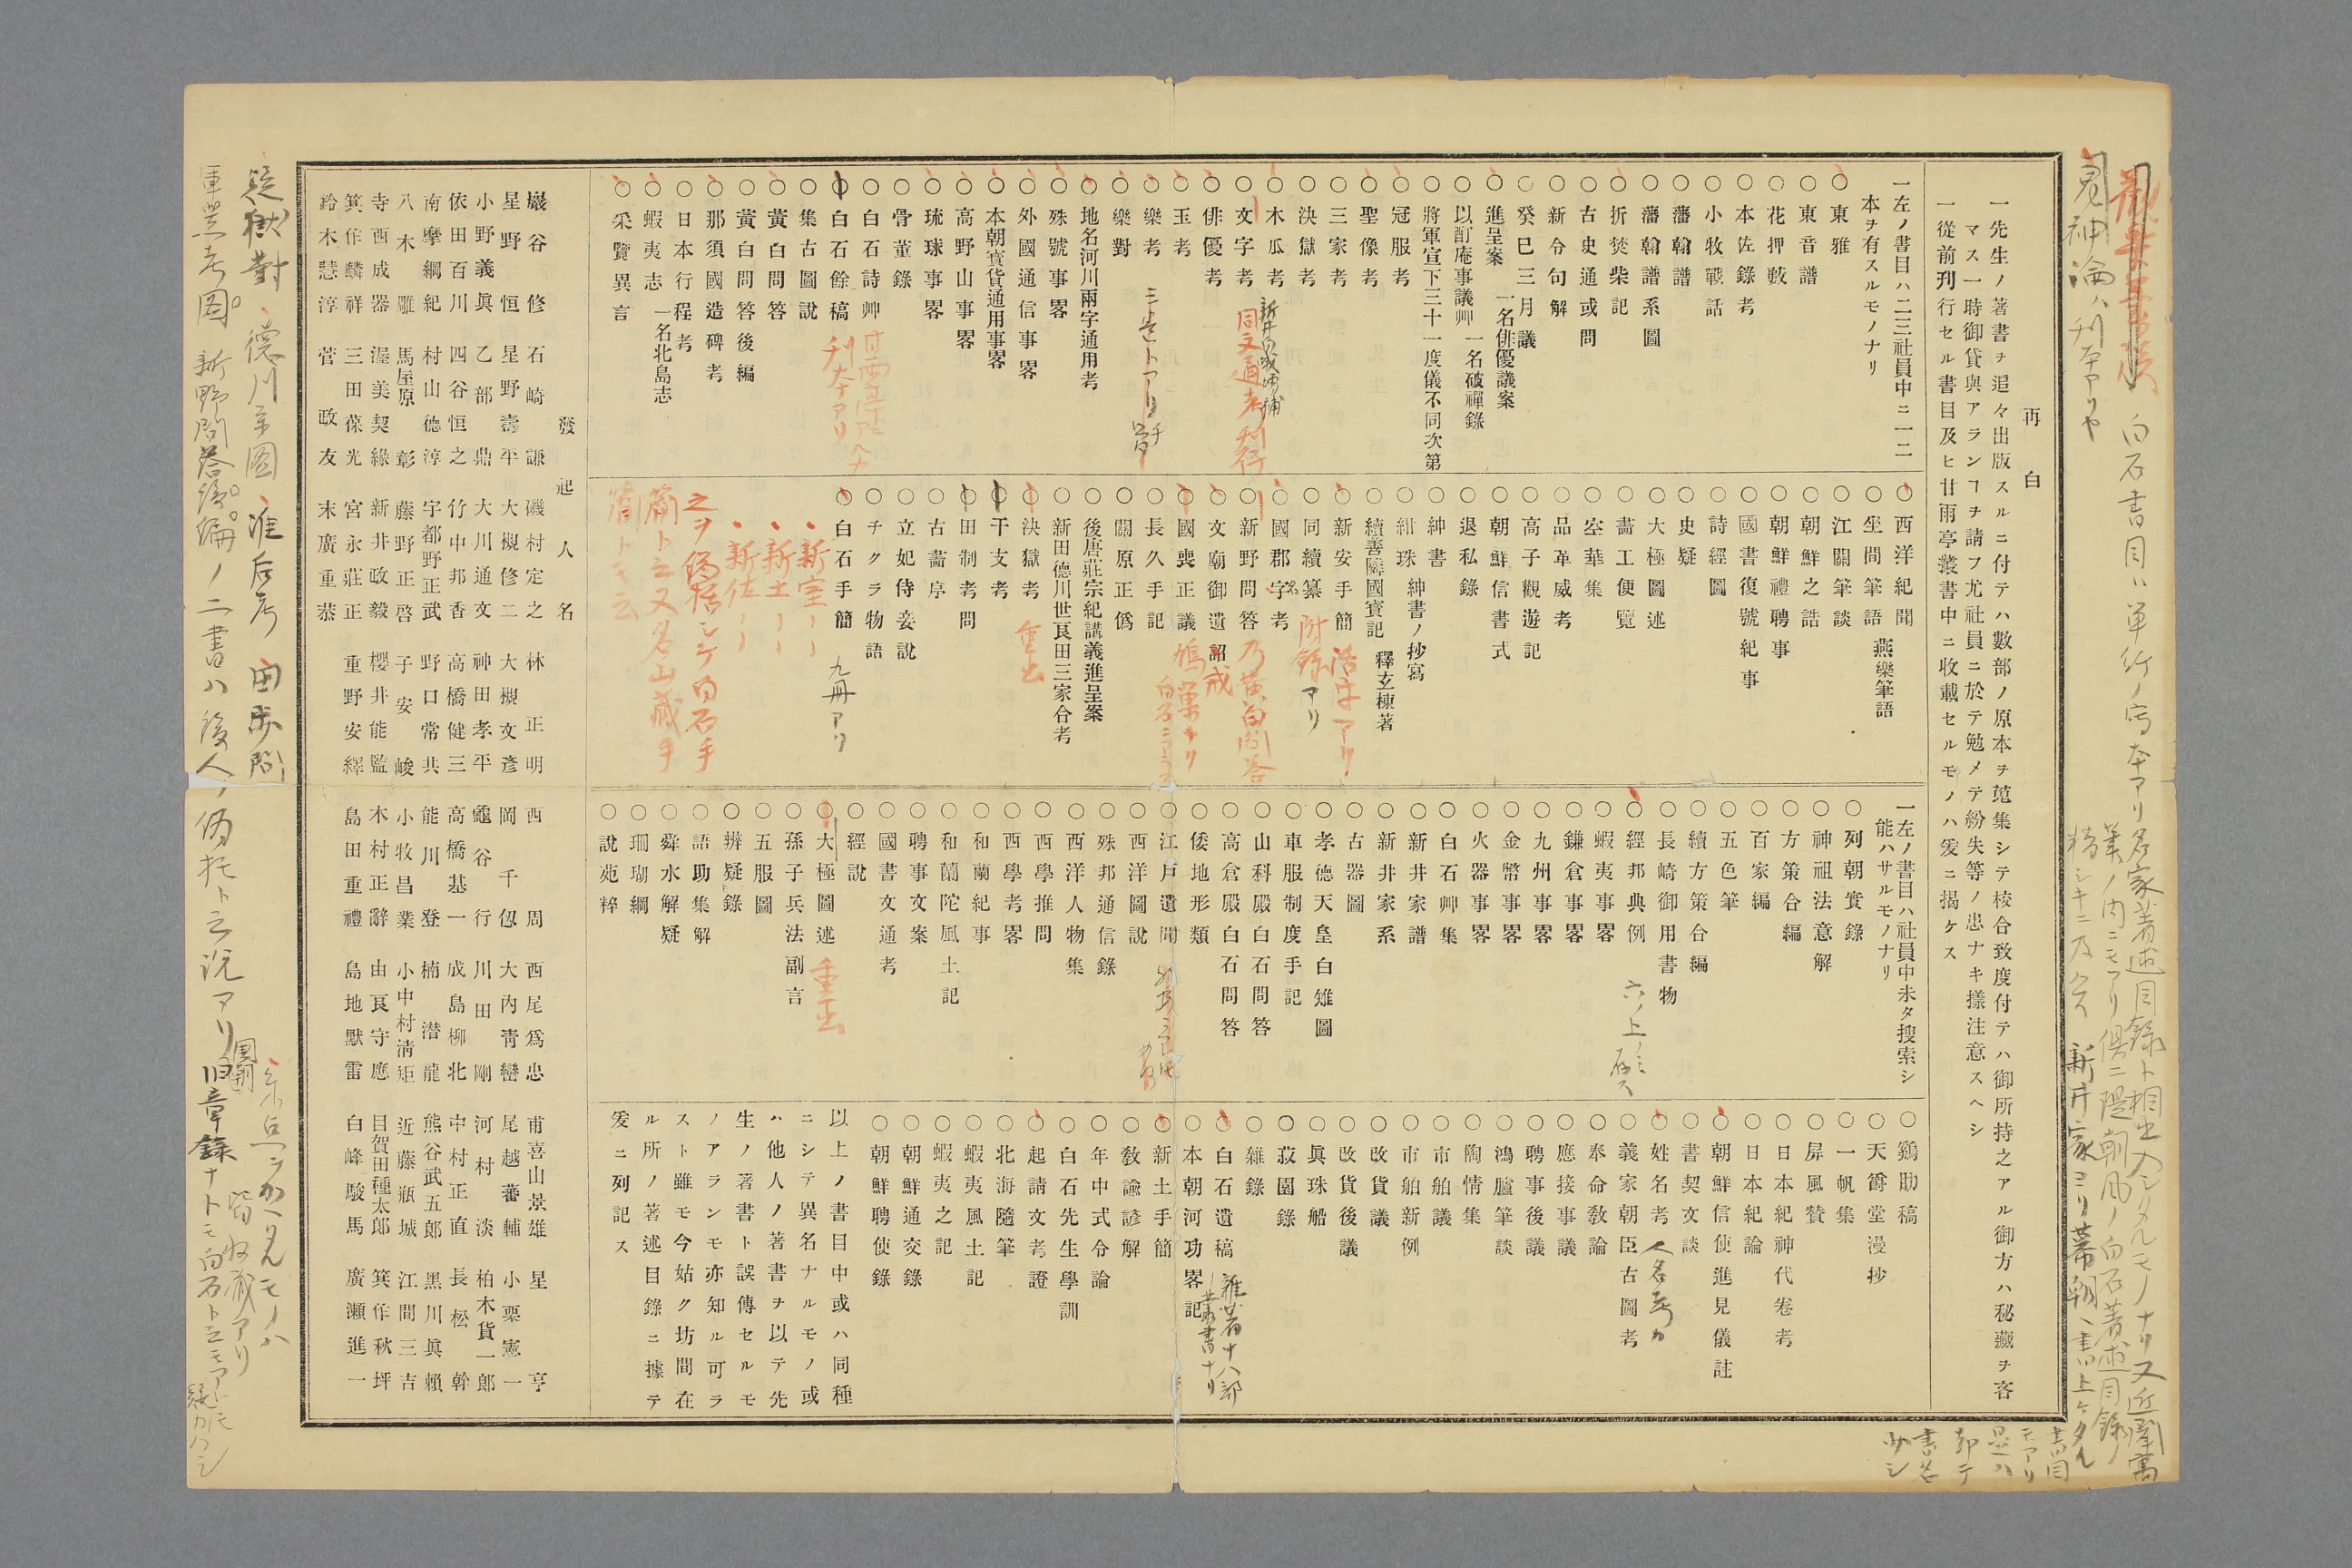 再白
一先生ノ著書ヲ追々出版スルニ付テハ數部ノ原本ヲ蒐集シテ校合致度付テハ御所持之アル御方ハ秘藏ヲ吝
マス一時御貸與アランヿヲ請フ尤社員ニ於テ勉メテ紛失等ノ患ナキ樣注意スヘシ
一從前刊行セル書目及ヒ甘雨亭叢書中ニ收載セルモノハ爰ニ揭ケス
一左ノ書目ハ二三社員中ニ一二
本ヲ有スルモノナリ
○東雅
○東音譜
○花押藪
○本佐錄考
○小牧戰話
○藩翰譜
○藩翰譜系圖
○折焚柴記
○古史通或問
○新令句解
○癸巳三月議
○進呈案 一名俳優議案
○以酊庵事議艸 一名破禪錄
○將軍宣下三十一度儀不同次第
○冠服考
○聖像考
○三家考
○決獄考
○木瓜考
○文字考
同文通考刊行
○俳優考
○玉考
○樂考
三考トアリ
○樂對
○地名河川兩字通用考
○殊號事畧
○外國通信事畧
○本朝寶貨通用事畧
○高野山事畧
○琉球事畧
○骨董錄
○白石詩艸
○白石餘稿
刊本アリ
○集古圖說
○黃白問答
○黃白問答後編
○那須國造碑考
○日本行程考
○蝦夷志 一名北島志
○采覽異言
○西洋紀聞
○坐間筆語 燕樂筆語
○江關筆談
○朝鮮之誥
○朝鮮禮聘事
○國書復號紀事
○詩經圖
○史疑
○大極圖述
○畵工便覽
○空華集
○品革威考
○高子觀遊記
○朝鮮信書式
○退私錄
○紳書
○紺珠 紳書ノ抄寫
○續善隣國寶記 釋玄棟著
○新安手簡
活字アリ
○同續纂
附錄アリ
○國郡字考
○新野問答
乃黃白問答
○文廟御遺詔
戒
○國喪正議
鳩巢ナリ
○長久手記
○關原正僞
○後唐莊宗紀講義進呈案
○新田德川世良田三家合考
○決獄考
重出
○干支考
○田制考問
○古畵序
○立妃侍妾說
○チクラ物語
○白石手簡
九冊アリ
新室〃〃
新土〃〃
新佐〃〃
一左ノ書目ハ社員中未タ搜索シ
能ハサルモノナリ
○列朝實錄
○神祖法意解
○方策合編
○百家編
○五色筆
○續方策合編
○長崎御用書物
○經邦典例
六ノ上ノミ存ス
○蝦夷事畧
○鎌倉事畧
○九州事畧
○金幣事畧
○火器事畧
○白石艸集
○新井家譜
○新井家系
○古器圖
○孝德天皇白雉圖
○車服制度手記
○山科殿白石問答
○高倉殿白石問答
○倭地形類
○江戶遺聞
○西洋圖說
○殊邦通信錄
○西洋人物集
○西學推問
○西學考畧
○和蘭紀事
○和蘭陀風土記
○聘事文案
○國書文通考
○經說
○大極圖述
重出
○孫子兵法副言
○五服圖
○辨疑錄
○語助集解
○舜水解疑
○珊瑚綱
○說苑粹
○鷄肋稿
○天爵堂漫抄
○一帆集
○屛風贊
○日本紀神代卷考
○日本紀論
○朝鮮信使進見儀註
○書契文談
○姓名考
人名考カ
○義家朝臣古圖考
○奉命敎論
○應接事議
○聘事後議
○鴻臚筆談
○陶情集
○市舶議
○市舶新例
○改貨議
○改貨後議
○眞珠船
○菽園錄
○雜錄
○白石遺稿
雜著十八部
叢書ナリ
○本朝河功畧記
○新土手簡
○敎諭諺解
○年中式令論
○白石先生學訓
○起請文考證
○北海隨筆
○蝦夷風土記
○蝦夷之記
○朝鮮通交錄
○朝鮮聘使錄
以上ノ書目中或ハ同種
ニシテ異名ナルモノ或
ハ他人ノ著書ヲ以テ先
生ノ著書ト誤傳セルモ
ノアランモ亦知ル可ラ
スト雖モ今姑ク坊間在
ル所ノ著述目錄ニ據テ
爰ニ列記ス
發起人名
巖谷修 石崎謙 磯村定之 林正明 西周 西尾爲忠 甫喜山景雄 星亨
星野恒 星野壽平 大槻修二 大槻文彥 岡千仭 大內靑巒 尾越蕃輔 小栗憲一
小野義眞 乙部鼎 大川通文 神田孝平 龜谷行 川田剛 河村淡 柏木貨一郞
依田百川 四谷恒之 竹中邦香 高橋健三 高橋基一 成島柳北 中村正直 長松幹
南摩綱紀 村山德淳 宇都野正武 野口常共 能川登 楠潜龍 熊谷武五郞 黑川眞賴
八木雕 馬屋原彰 藤野正啓 子安峻 小牧昌業 小中村淸矩 近藤瓶城 江間三吉
寺西成器 渥美契緣 新井政毅 櫻井能監 木村正辭 由良守應 目賀田種太郞 箕作秋坪
箕作麟祥 三田葆光 宮永莊正 重野安繹 島田重禮 島地默雷 白峰駿馬 廣瀨進一
鈴木慧淳 菅政友 末廣重恭
疑獄對 德川系圖 准后考 田制問
軍器考圖 新野問答後編ノ二書ハ後人ノ僞托ト云說アリ